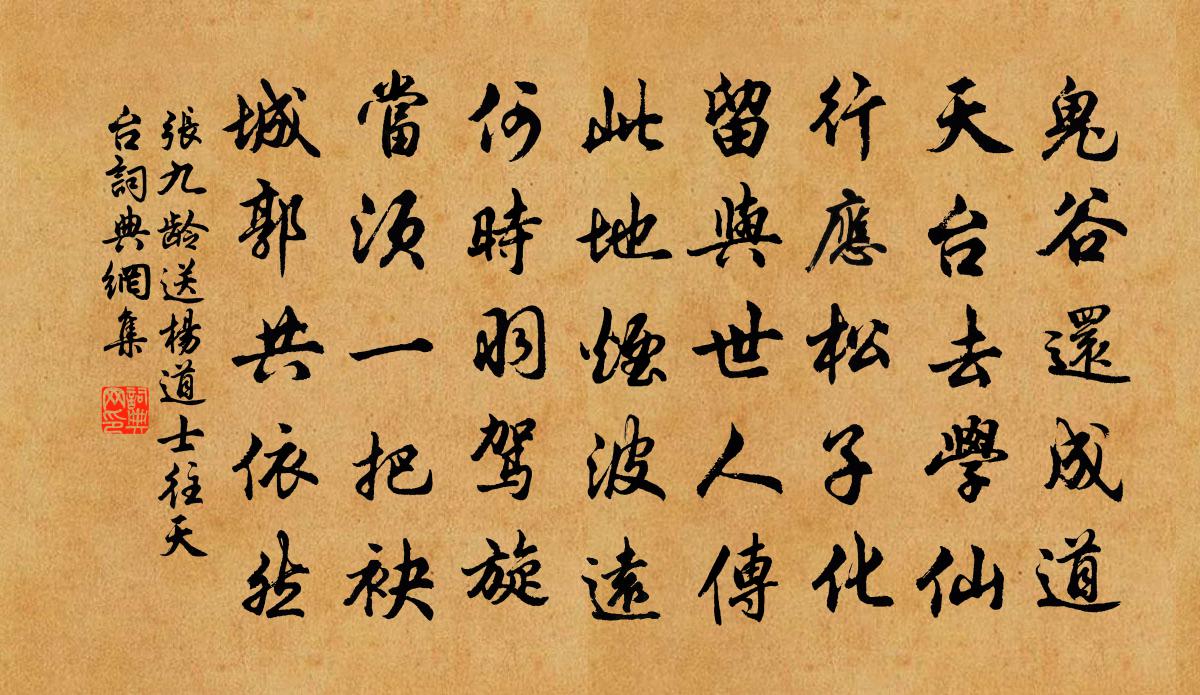 鬼谷還成道
天台去學仙
行應松子化
留與世人傳
此地煙波遠
何時羽駕旋
當須一把袂
城郭共依然
張九龄送楊道士往天
台詞典網集
詞典网印